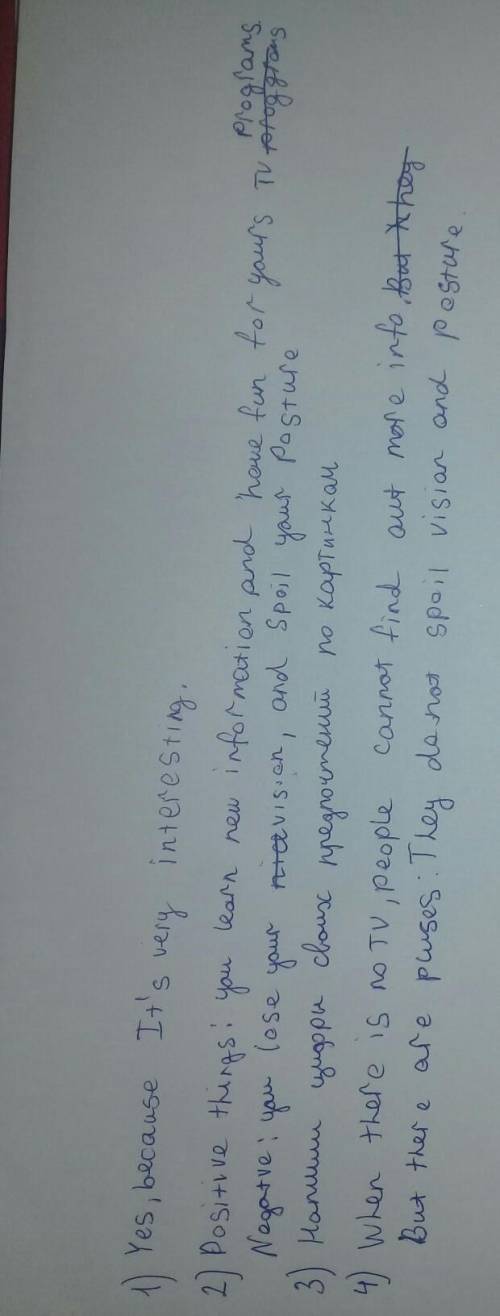 1) Yes, because It's very interesting.
2) Positive things: you learn new information and have fun for yours TV programs
Negative: you lose your vision, and spoil your posture
3) Напиши цифры своих предпочтений по картинкам
4) When there is no TV, people cannot find out more info. But they
But there are pluses: They do not spoil vision and posture.